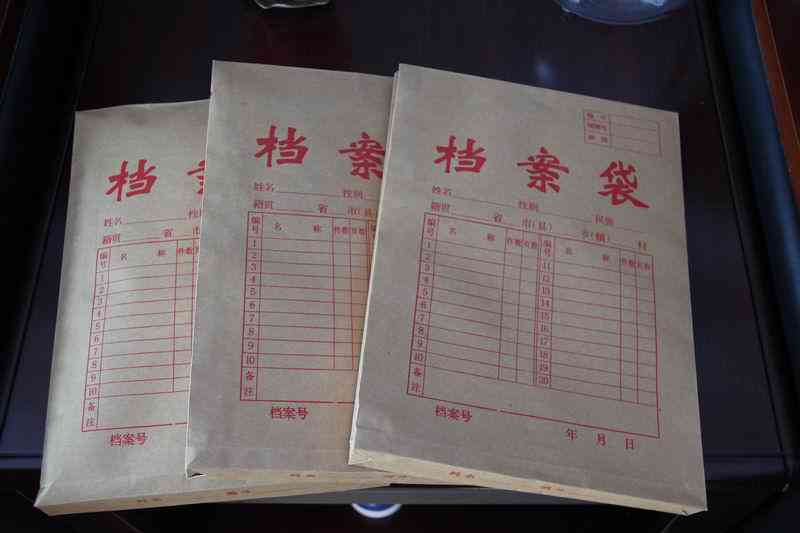 档
姓名 性
籍贯 省 市
编号 名 称 件数
1
2
3
4
5
6
7
8
9
10
备注
档案号
档案
姓名 性别
籍贯 省 市(县)
编号 名 称 件数 页数
1
2
3
4
5
6
7
8
9
10
备注
档案号
档案袋
姓名 性别 民族
籍贯 省 市(县) 乡(镇) 村
编号 名 称 件数 页数 编号 名 称 件数 页数
1 11
2 12
3 13
4 14
5 15
6 16
7 17
8 18
9 19
10 20
备注
档案号 年 月 日